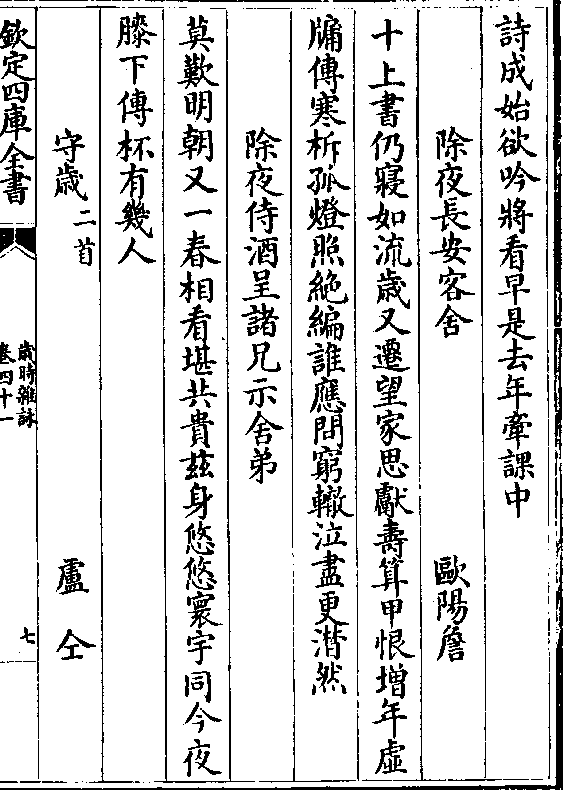 詩成始欲吟將看早是去年牽課中
除夜長安客舍 歐陽詹
十上書仍寢如流歲又遷望家思獻壽算甲恨增年虛
牖傳寒柝孤燈照絶編誰應問窮轍泣盡更潸然
除夜侍酒呈諸兄示舍弟
莫歎明朝又一春相看堪共貴玆身悠悠寰宇同今夜
膝下傳杯有幾人
守歲二首 盧仝
欽定四庫全書 歲時雜詠 卷四十一 七